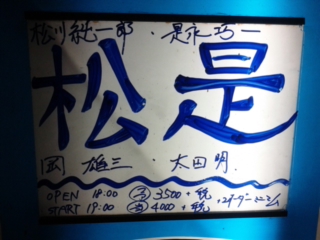 松川純一郎・是永巧一
松是
岡 雄三・太田明
OPEN 18:00 予 3500+税
START 19:00 当 4000+税